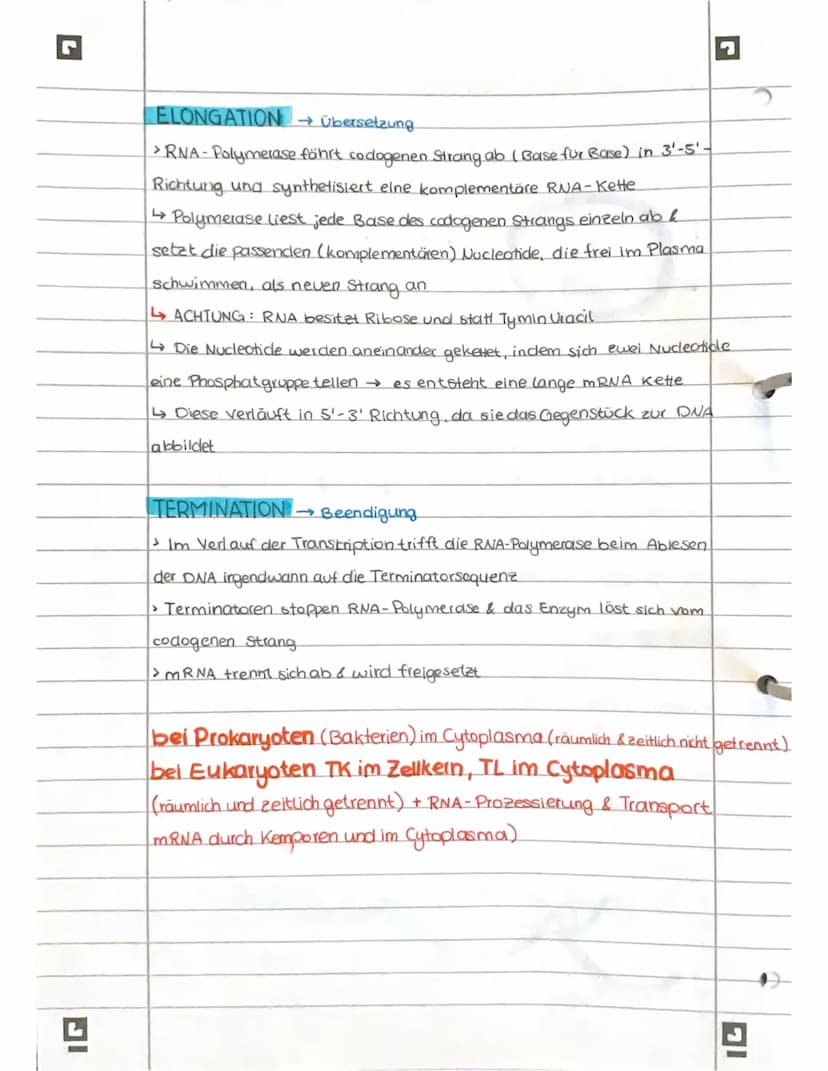 ELONGATION → Übersetzung
> RNA-Polymerase fährt codogenen Strang ab (Base für Base) in 3'-5'-
Richtung und synthetisiert eine komplementäre RNA-Kette
↳ Polymerase liest jede Base des codogenen Strangs einzeln ab &
setzt die passenden (komplementären) Nucleotide, die frei im Plasma
schwimmen, als neuen Strang an
↳ ACHTUNG: RNA besitzt Ribose und statt Tymin Uracil
↳ Die Nucleotide werden aneinander gekettet, indem sich zwei Nucleotide
eine Phosphatgruppe teilen → es entsteht eine lange mRNA Kette
↳ Diese verläuft in 5'-3' Richtung, da sie das Gegenstück zur DNA
abbildet
TERMINATION → Beendigung
> Im Verlauf der Transkription trifft die RNA-Polymerase beim Ablesen
der DNA irgendwann auf die Terminatorsequenz
> Terminatoren stoppen RNA-Polymerase & das Enzym löst sich vom
codogenen Strang
> mRNA trennt sich ab & wird freigesetzt
bei Prokaryoten (Bakterien) im Cytoplasma (räumlich & zeitlich nicht getrennt)
bei Eukaryoten TK im Zellkern, TL im Cytoplasma
(räumlich und zeitlich getrennt) + RNA-Prozessierung & Transport
mRNA durch Kernporen und im Cytoplasma)